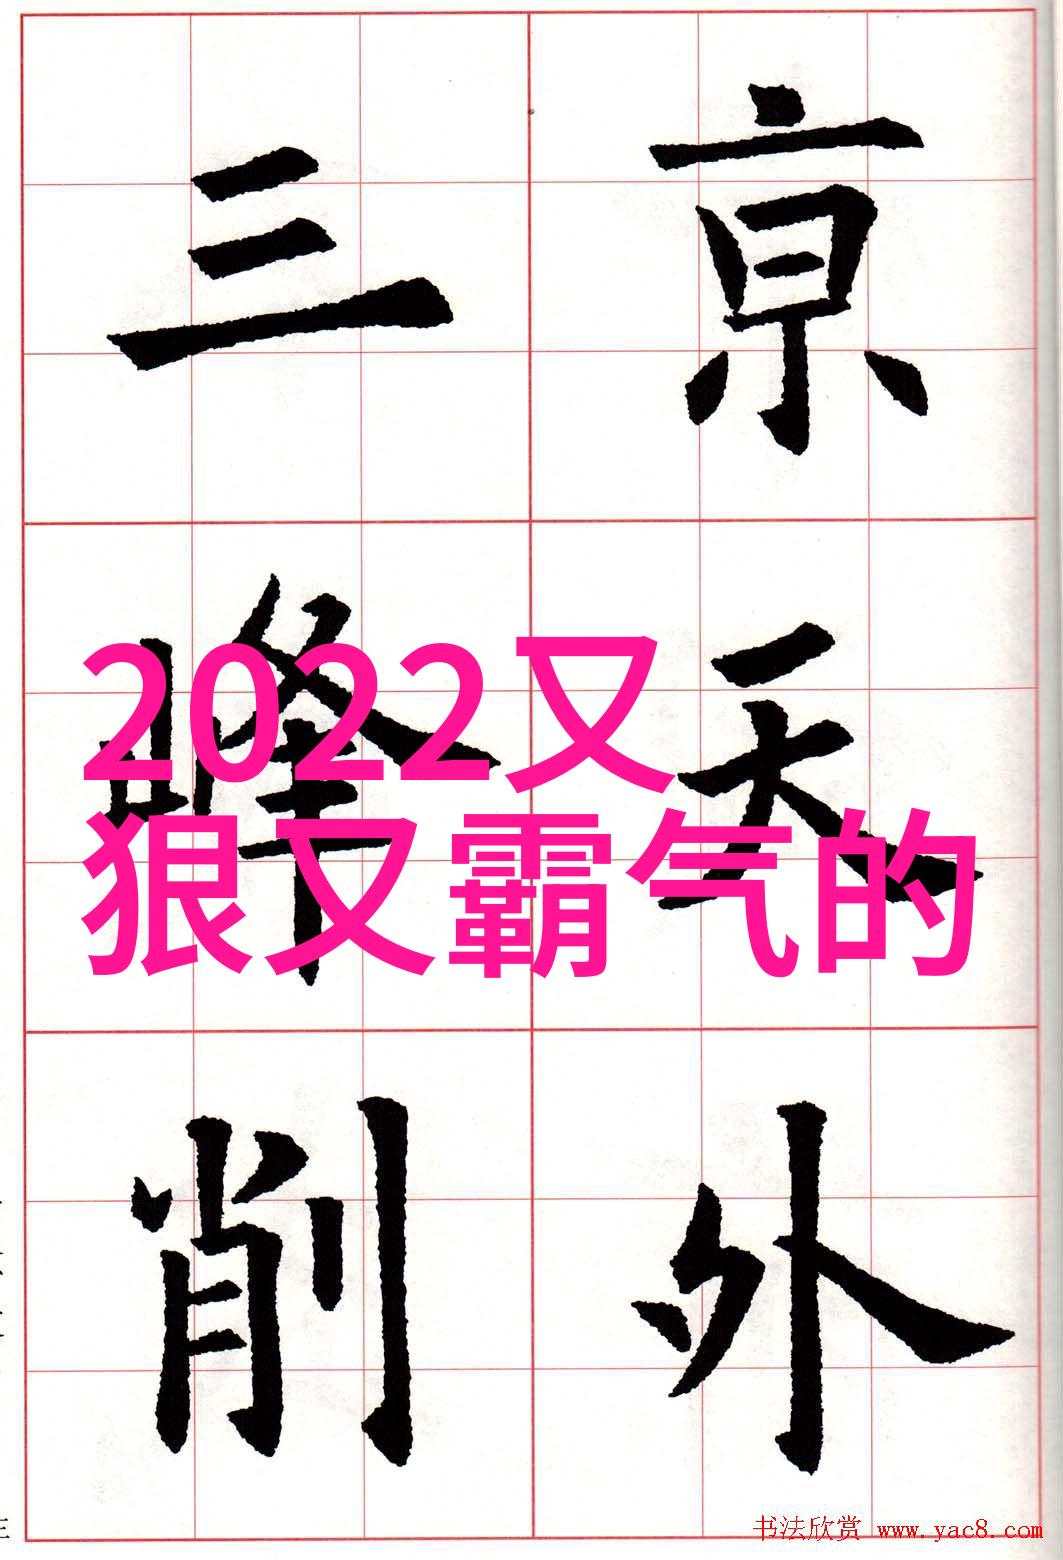 亰天外
三峰削
2022又
狠又霸气的
书法欣赏 www.yac8.com